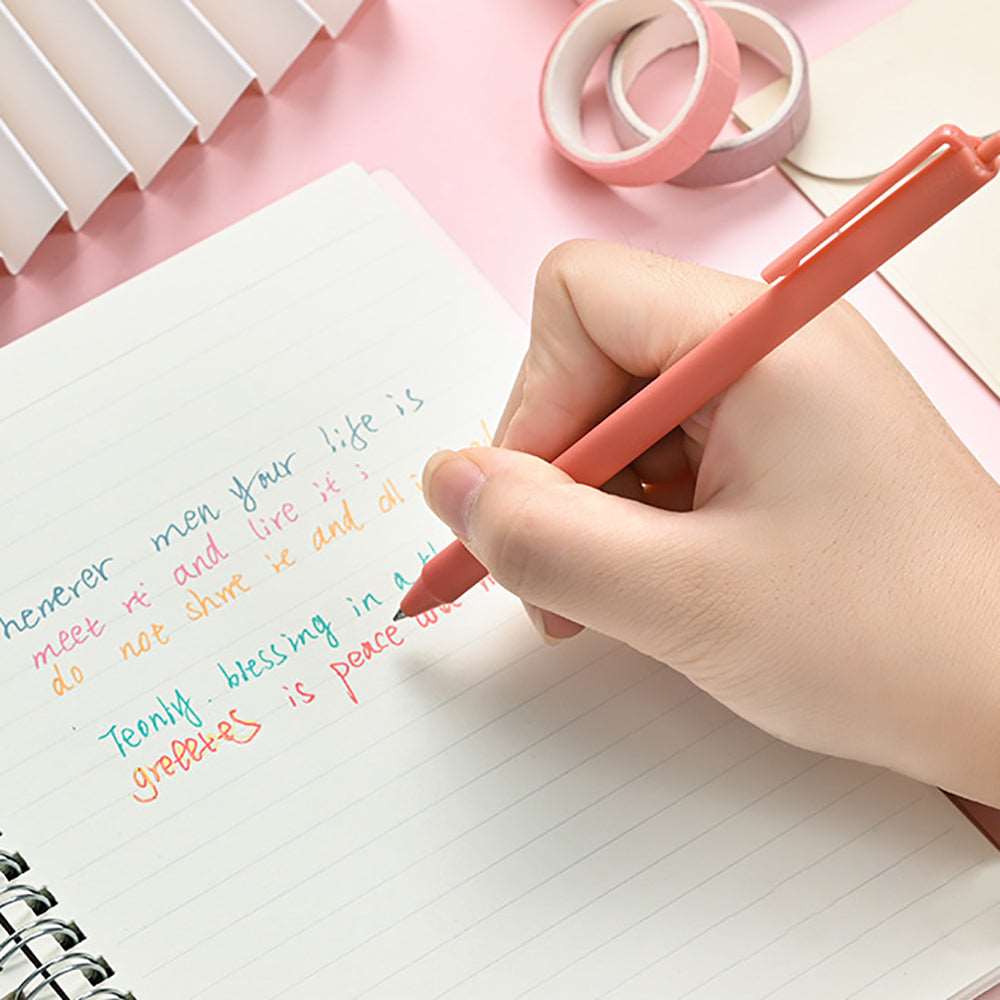 henever men your life is
meet rt and live it i
do not shrre ie and all i
Teonly. blessing in a
greeetes is peace